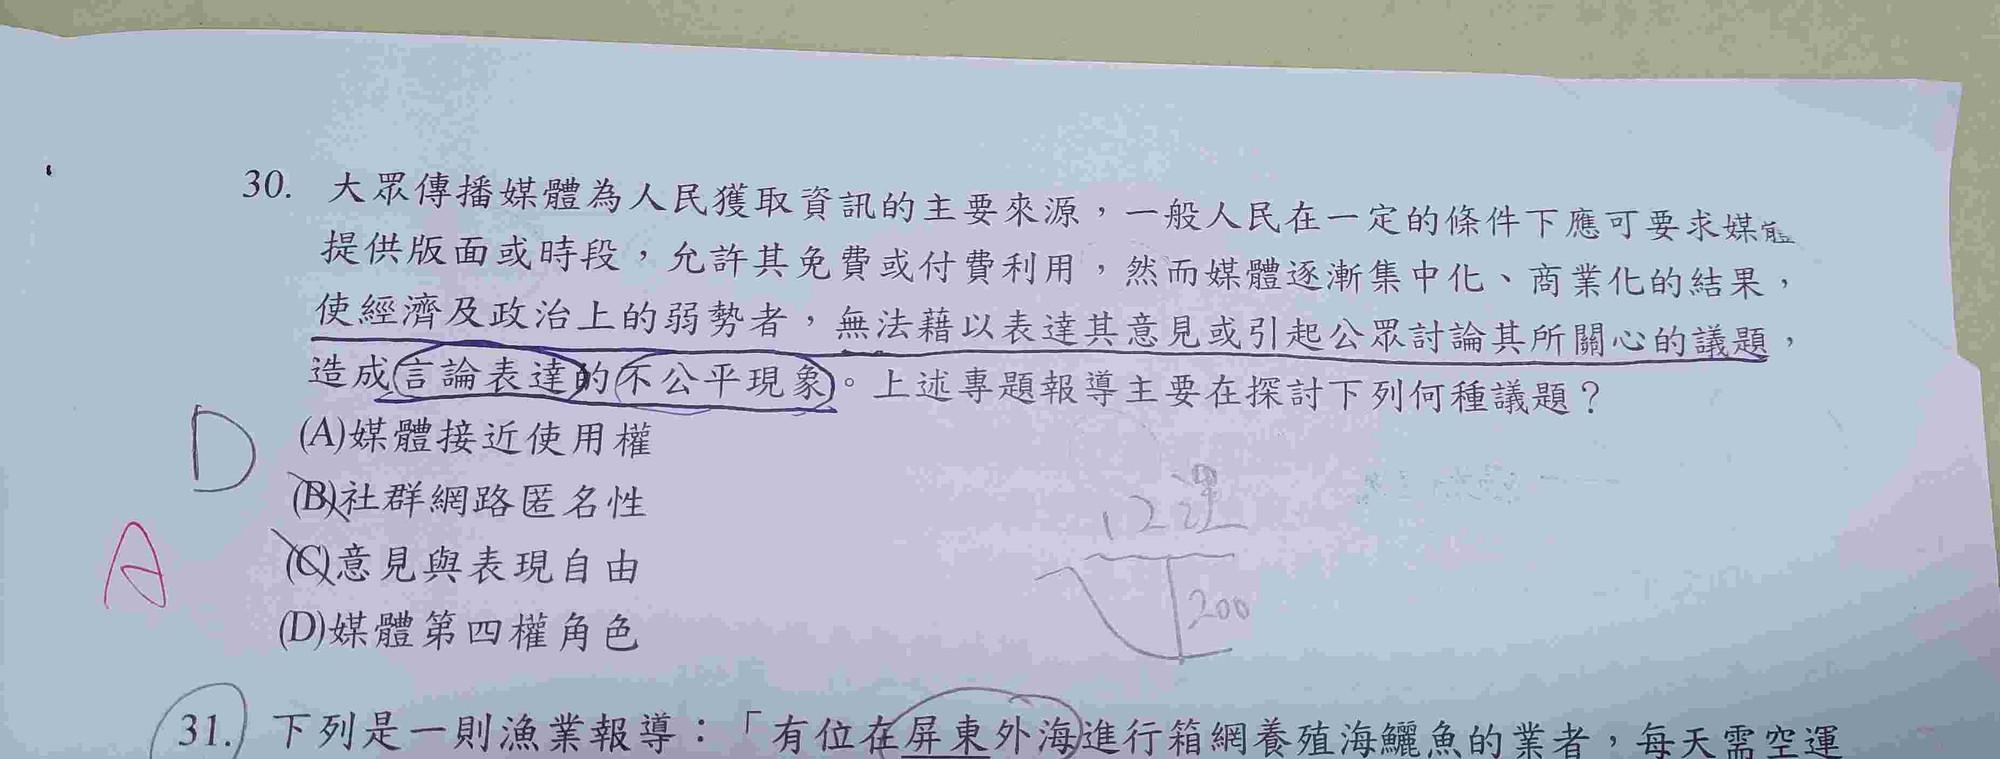 30. 大眾傳播媒體為人民獲取資訊的主要來源，一般人民在一定的條件下應可要求媒體
提供版面或時段，允許其免費或付費利用，然而媒體逐漸集中化、商業化的結果，
使經濟及政治上的弱勢者，無法藉以表達其意見或引起公眾討論其所關心的議題，
造成言論表達的不公平現象。上述專題報導主要在探討下列何種議題？
D
(A)媒體接近使用權
(B)社群網路匿名性
A
(C)意見與表現自由
(D)媒體第四權角色
12浬
200
31. 下列是一則漁業報導：「有位在屏東外海進行箱網養殖海鱺魚的業者，每天需空運